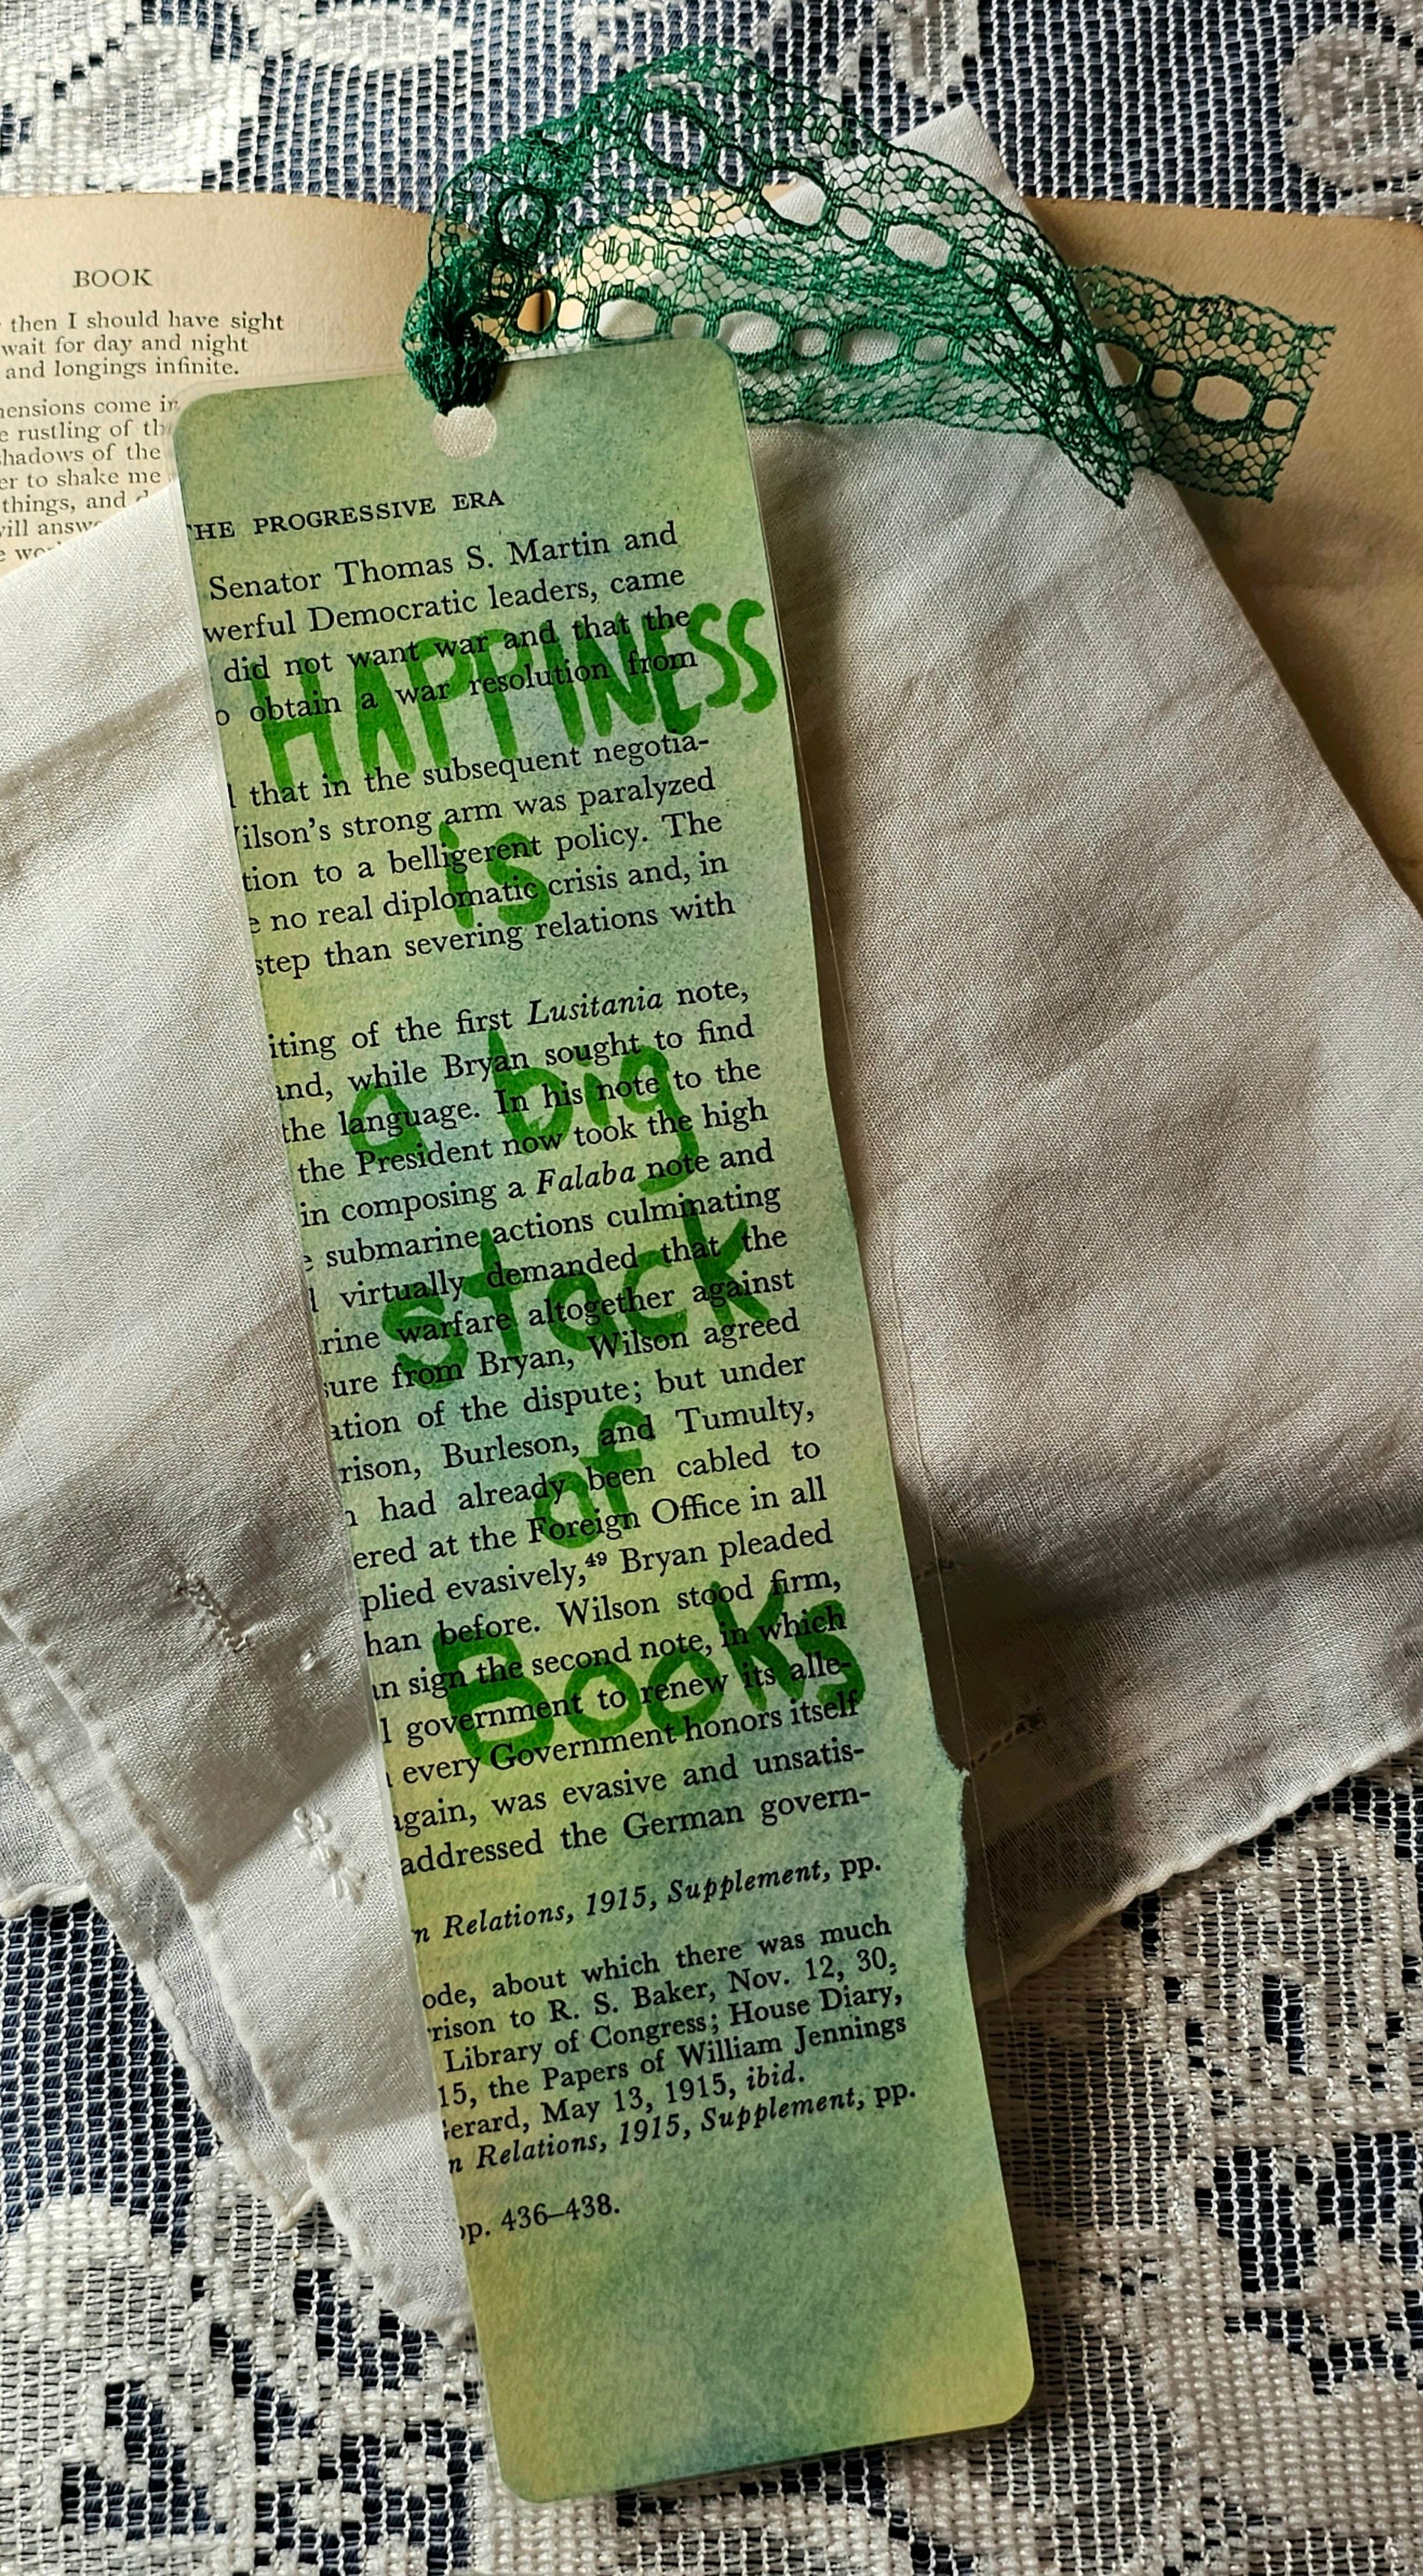 BOOK
then I should have sight
wait for day and night
and longings infinite.
come in
rustling of
of the
to shake me
things, and
THE PROGRESSIVE ERA
Senator Thomas S. Martin and
werful Democratic leaders, came
did not want war and that the
HAPPINESS
o obtain a war resolution from
that in the subsequent negotia-
ilson's strong arm was paralyzed
is
tion to a belligerent policy. The
e no real diplomatic crisis and, in
step than severing relations with
iting of the first Lusitania note,
and, while Bryan sought to find
a big
the language. In his note to the
the President now took the high
in composing a Falaba note and
e submarine actions culminating
stack
l virtually demanded that the
rine warfare altogether against
sure from Bryan, Wilson agreed
ation of the dispute; but under
of
rison, Burleson, and Tumulty,
n had already been cabled to
ered at the Foreign Office in all
plied evasively,⁴⁹ Bryan pleaded
han before. Wilson stood firm,
Books
an sign the second note, in which
l government to renew its alle-
every Government honors itself
again, was evasive and unsatis-
addressed the German govern-
n Relations, 1915, Supplement, pp.
ode, about which there was much
rison to R. S. Baker, Nov. 12, 30,
Library of Congress; House Diary,
15, the Papers of William Jennings
Gerard, May 13, 1915, ibid.
n Relations, 1915, Supplement, pp.
pp. 436–438.